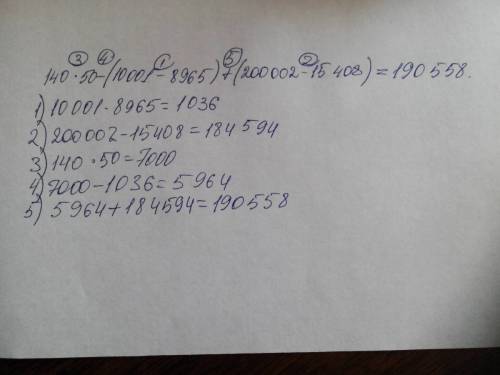 ③ ④ ① ⑤ ②
140·50-(10001-8965)+(200002-15408)=190558.
1) 10001-8965=1036
2) 200002-15408=184594
3) 140·50=7000
4) 7000-1036=5964
5) 5964+184594=190558